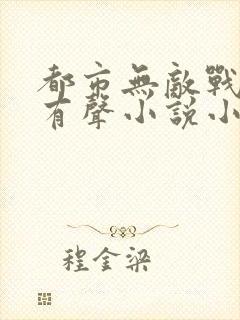 都市無敵戰
有聲小說小
程金梁